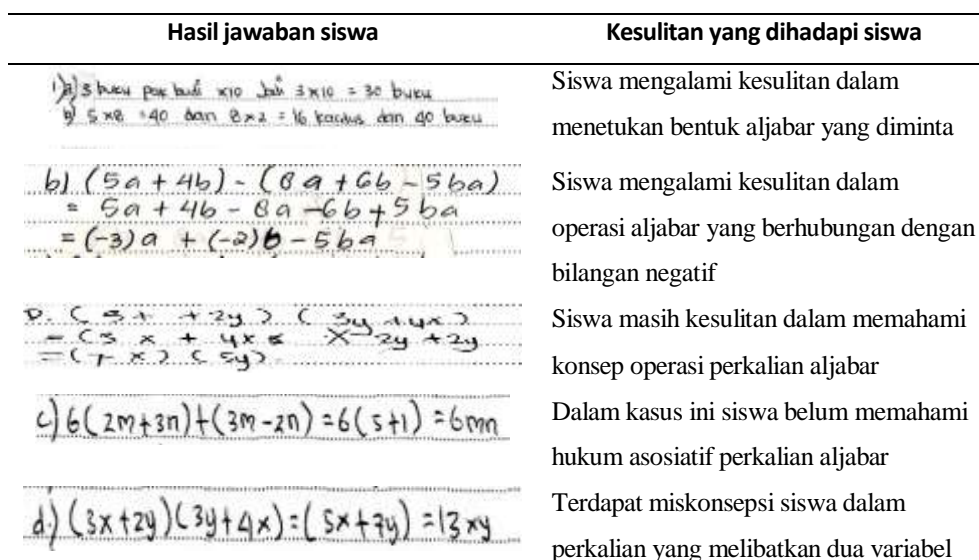 Hasil jawaban siswa
Kesulitan yang dihadapi siswa
1) a) 3 buku pak budi x10 Jadi 3x10 = 30 buku
b) 5x8 = 40 dan 8x2 = 16 kardus dan 40 buku
Siswa mengalami kesulitan dalam
menetukan bentuk aljabar yang diminta
b) (5a + 4b) - (8a + 6b - 5ba)
= 5a + 4b - 8a - 6b + 5ba
= (-3)a + (-2)b - 5ba
Siswa mengalami kesulitan dalam
operasi aljabar yang berhubungan dengan
bilangan negatif
D. (3+ +2y) (3y+4x)
= (3x + 4x 2y + 2y
= (7x) (5y)
Siswa masih kesulitan dalam memahami
konsep operasi perkalian aljabar
c) 6(2m+3n)+(3m-2n) = 6(5+1) = 6mn
Dalam kasus ini siswa belum memahami
hukum asosiatif perkalian aljabar
d.) (3x+2y)(3y+4x) = (5x+7y) = 13xy
Terdapat miskonsepsi siswa dalam
perkalian yang melibatkan dua variabel